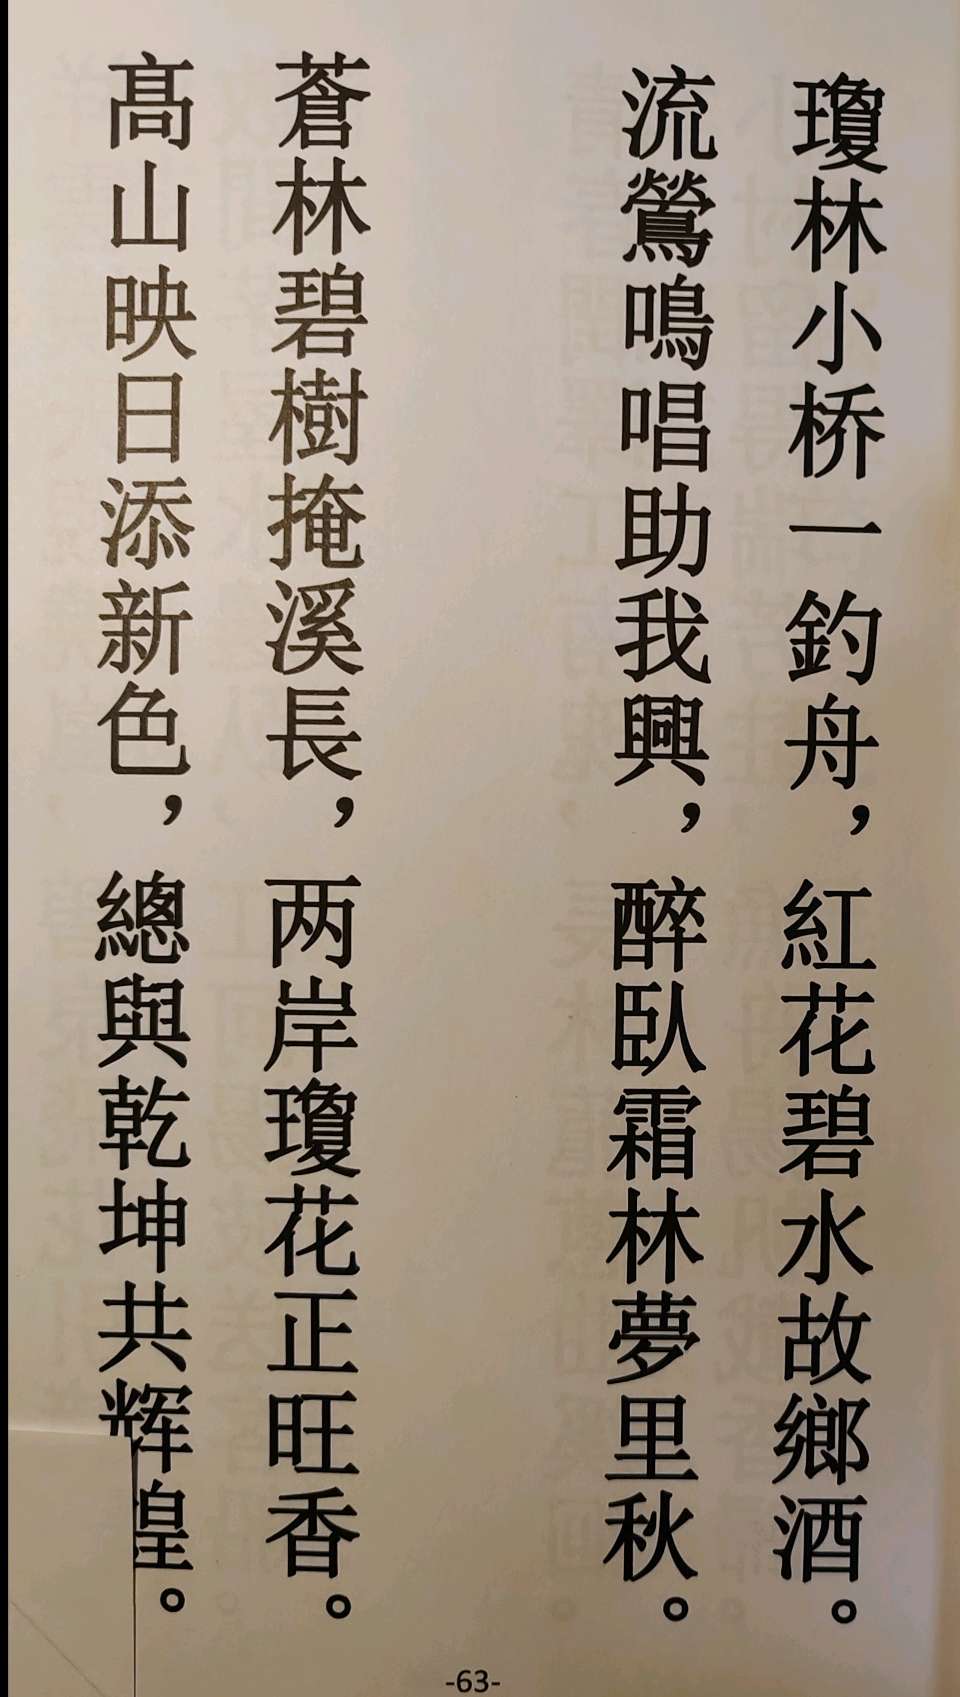 瓊林小桥一釣舟，紅花碧水故鄉酒。
流鶯鳴唱助我興，醉臥霜林夢里秋。
蒼林碧樹掩溪長，两岸瓊花正旺香。
高山映日添新色，總與乾坤共辉煌。
-63-